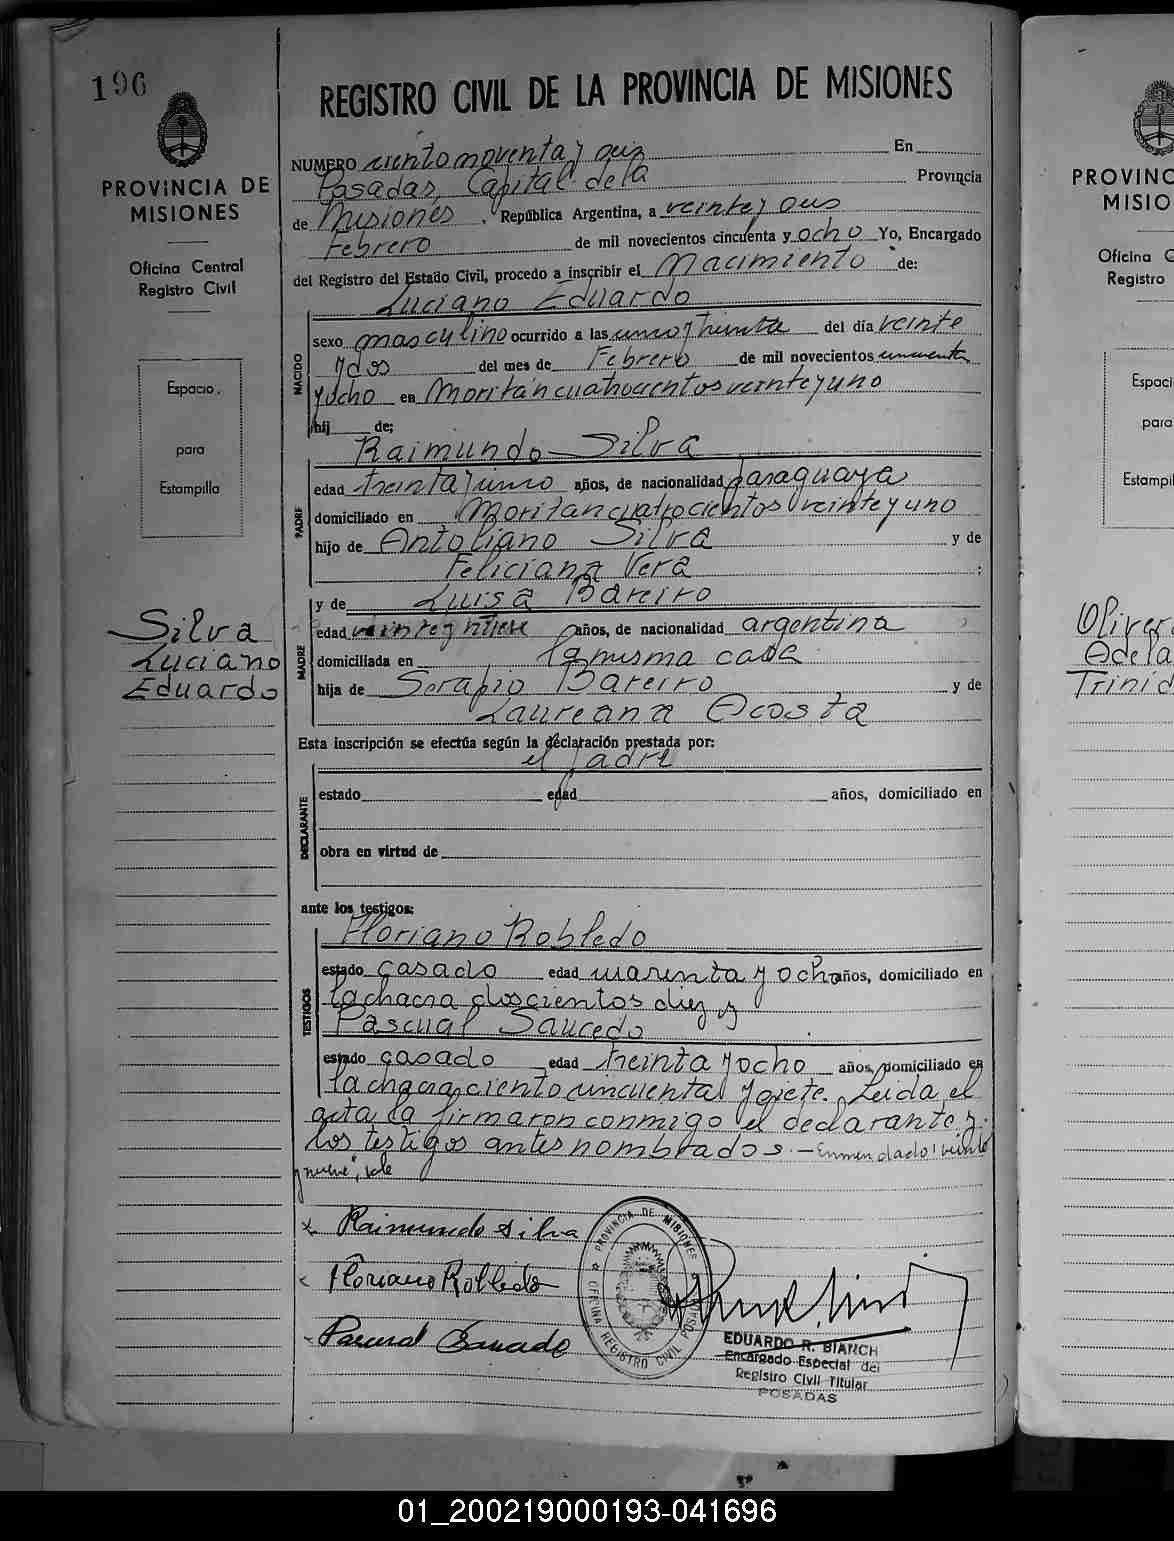 196
PROVINCIA DE
MISIONES
Oficina Central
Registro Civil
Espacio
para
Estampilla
Silva
Luciano
Eduardo
REGISTRO CIVIL DE LA PROVINCIA DE MISIONES
NUMERO ciento noventa y seis En
Posadas, Capital de la Provincia
de Misiones, República Argentina, a veinte y
Febrero de mil novecientos cincuenta y ocho Yo, Encargado
del Registro del Estado Civil, procedo a inscribir el Nacimiento de:
Luciano Eduardo
NACIDO
sexo masculino ocurrido a las uno y treinta del día veinte
y dos del mes de Febrero de mil novecientos cincuenta
y ocho en Moritán cuatrocientos veinte y uno
hij de;
Raimundo Silva
PADRE
edad treinta y uno años, de nacionalidad paraguaya
domiciliado en Moritan cuatrocientos veinte y uno
hijo de Antoliano Silva y de
Feliciana Vera ;
y de Luisa Bareiro
MADRE
edad veinte y nueve años, de nacionalidad argentina
domiciliada en la misma casa
hija de Serapio Bareiro y de
Laureana Acosta
Esta inscripción se efectúa según la declaración prestada por:
el padre
DECLARANTE
estado edad años, domiciliado en
obra en virtud de
ante los testigos:
Floriano Robledo
TESTIGOS
estado casado edad cuarenta y ocho años, domiciliado en
la chacra doscientos diez y
Pascual Saucedo
estado casado edad treinta y ocho años, domiciliado en
la chacra ciento cincuenta y siete. Leida el
acta la firmaron conmigo el declarante y
los testigos antes nombrados.- Enmendado: veinte
y nueve", vale
x Raimundo Silva
Floriano Robledo
Pascual Saucedo
PROVINCIA DE MISIONES
OFICINA REGISTRO CIVIL POSADAS
EDUARDO R. BIANCHI
Encargado Especial del
Registro Civil Titular
POSADAS
PROVINC
MISIO
Oficina C
Registro
Espaci
para
Estampil
Oliver
Adela
Trinid
01_200219000193-041696